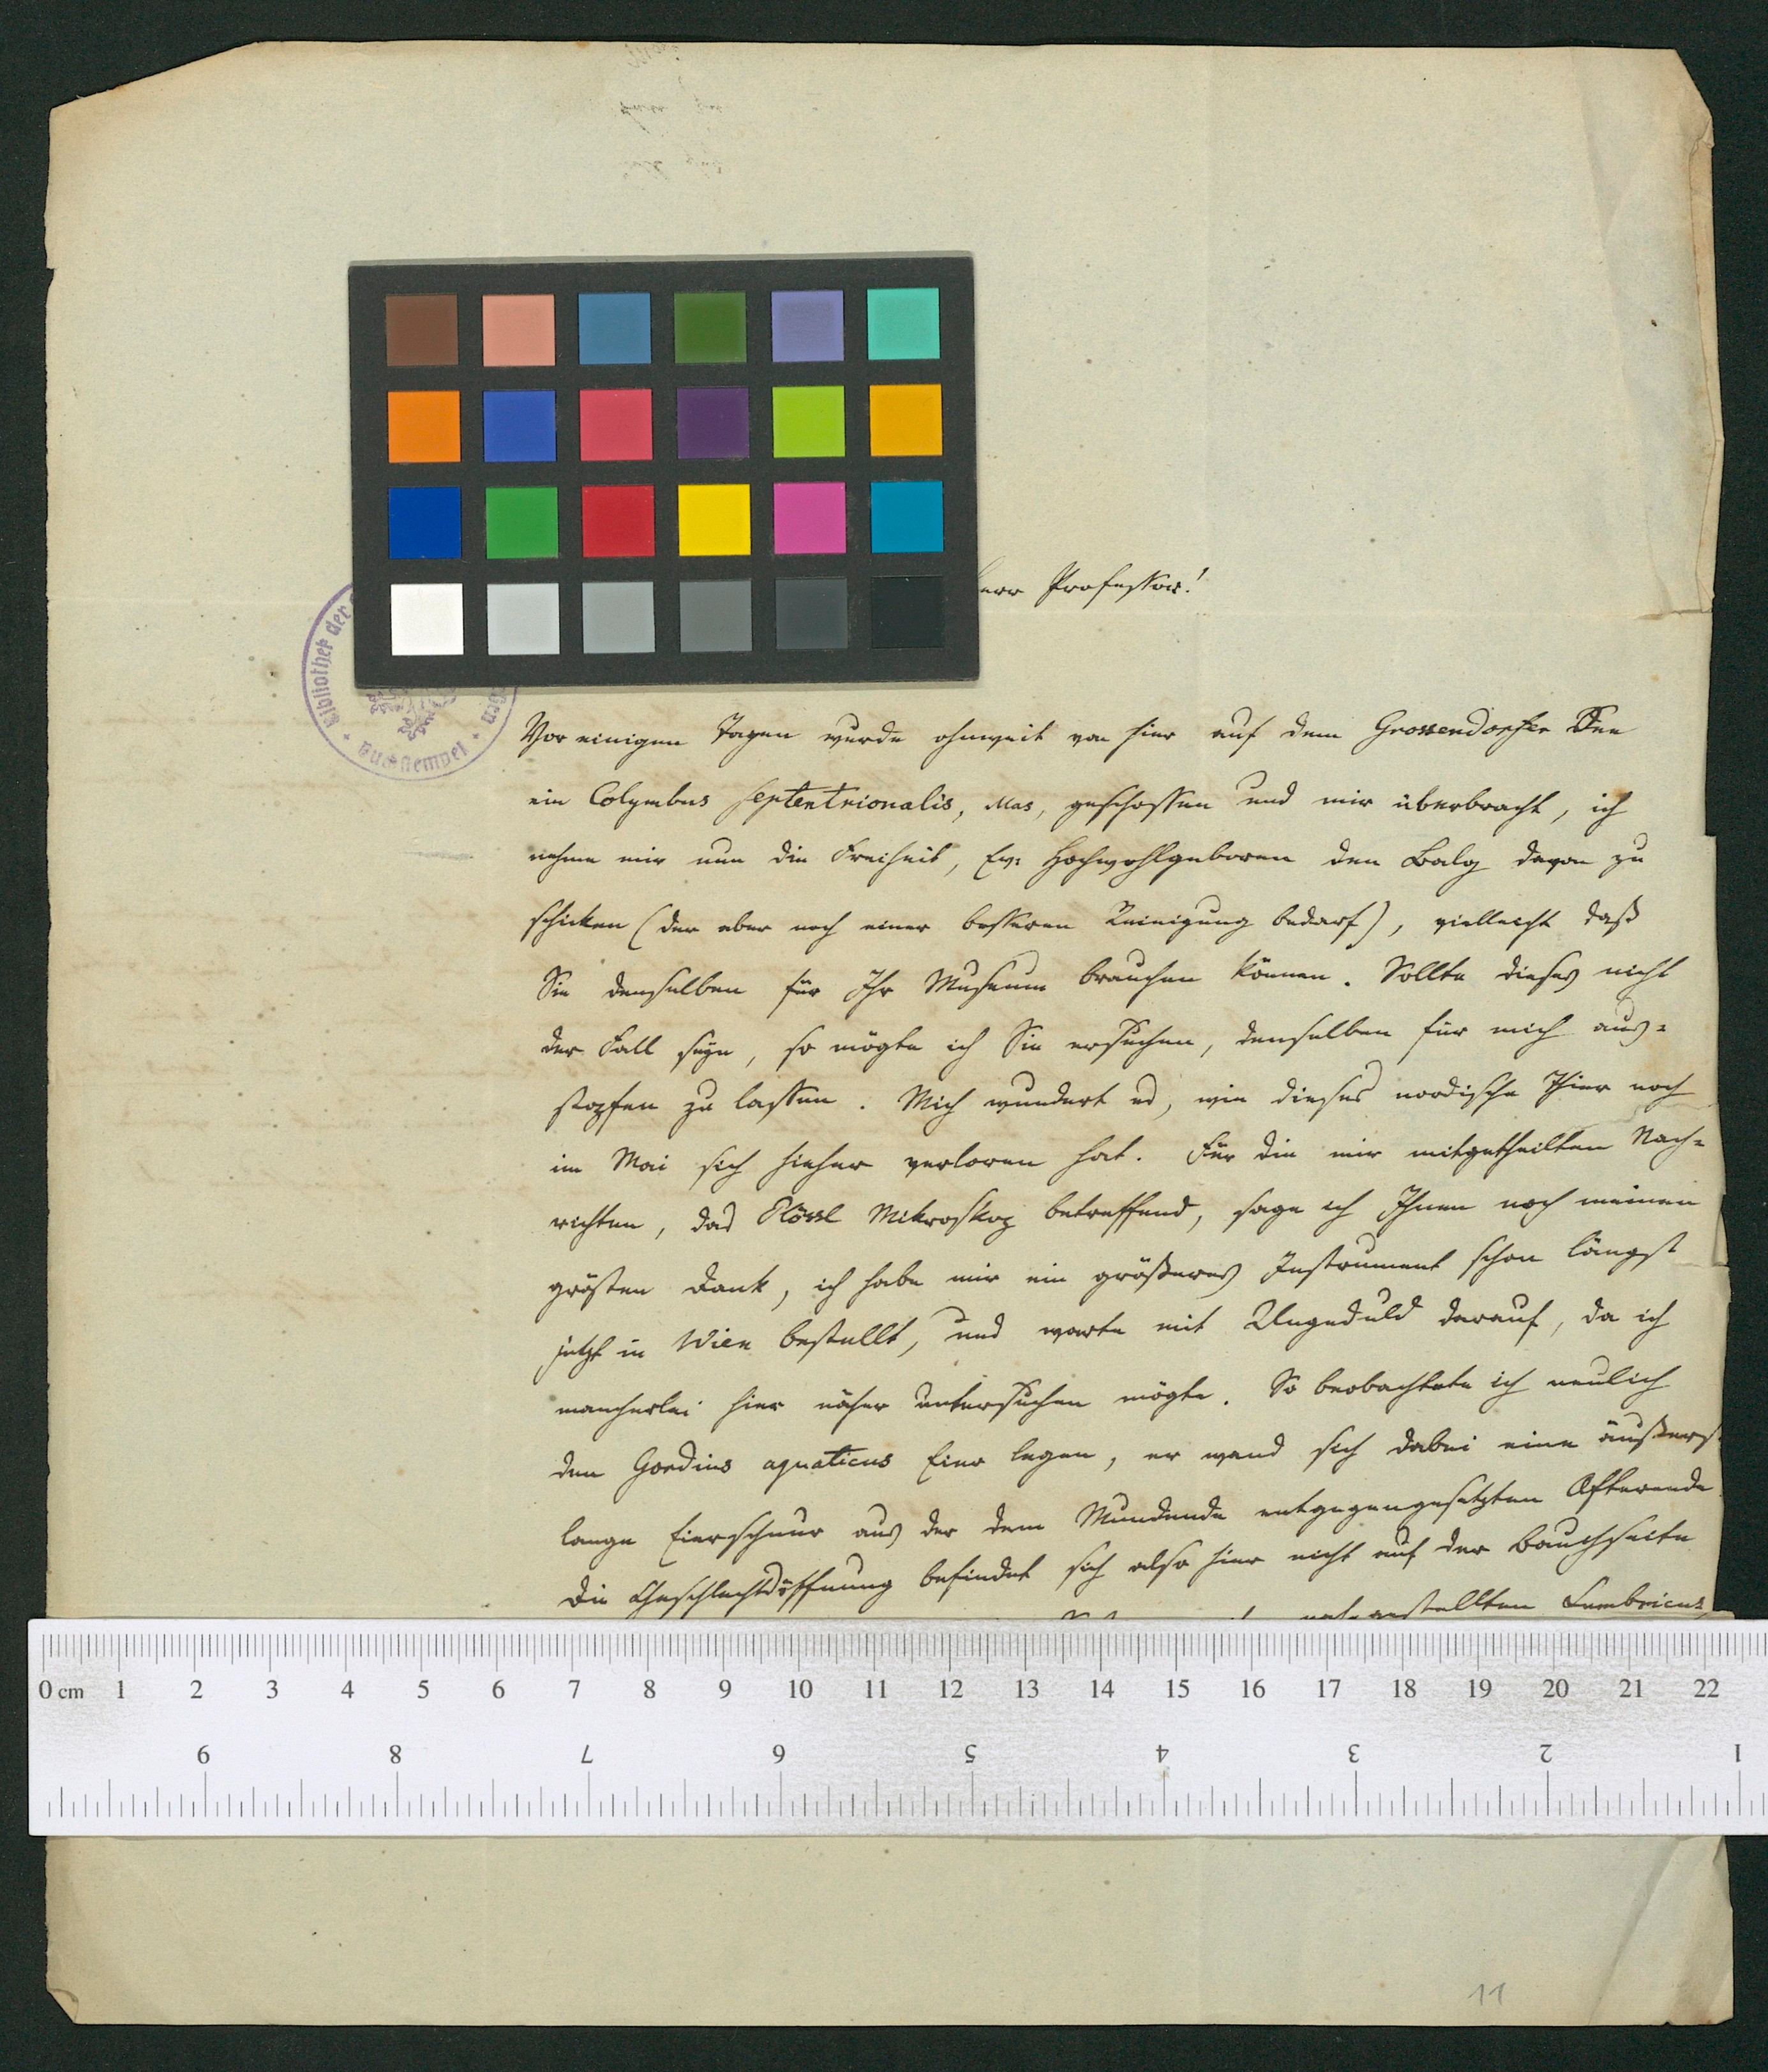 Herr Professor!
Bibliothek der
Buchstempel
Vor einigen Tagen wurde ohnweit von hier auf dem Grossendorfer See
ein Colymbus septentrionalis, Mas, geschossen und mir überbracht, ich
nehme mir nun die Freiheit, Ew: Hochwohlgeboren den Balg davon zu
schicken (der aber noch einer besseren Reinigung bedarf), vielleicht daß
Sie denselben für Ihr Museum brauchen können. Sollte dieses nicht
der Fall seyn, so mögte ich Sie ersuchen, denselben für mich aus-
stopfen zu lassen. Mich wundert es, wie dieses nordische Thier noch
im Mai sich hieher verloren hat. Für die mir mitgetheilten Nach-
richten, das Plössl Mikroskop betreffend, sage ich Ihnen noch meinen
grösten Dank, ich habe mir ein größeres Instrument schon längst
jetzt in Wien bestellt, und warte mit Ungeduld darauf, da ich
mancherlei hier näher untersuchen mögte. So beobachtete ich neulich
den Gordius aquaticus Eier legen, er wand sich dabei eine äußerst
lange Eierschnur aus der dem Mundende entgegengesetzten Afterende
Die Geschlechtsöffnung befindet sich also hier nicht auf der Bauchseite
Lumbricus,
0 cm 1 2 3 4 5 6 7 8 9 10 11 12 13 14 15 16 17 18 19 20 21 22
9 8 7 6 5 4 3 2 1
11